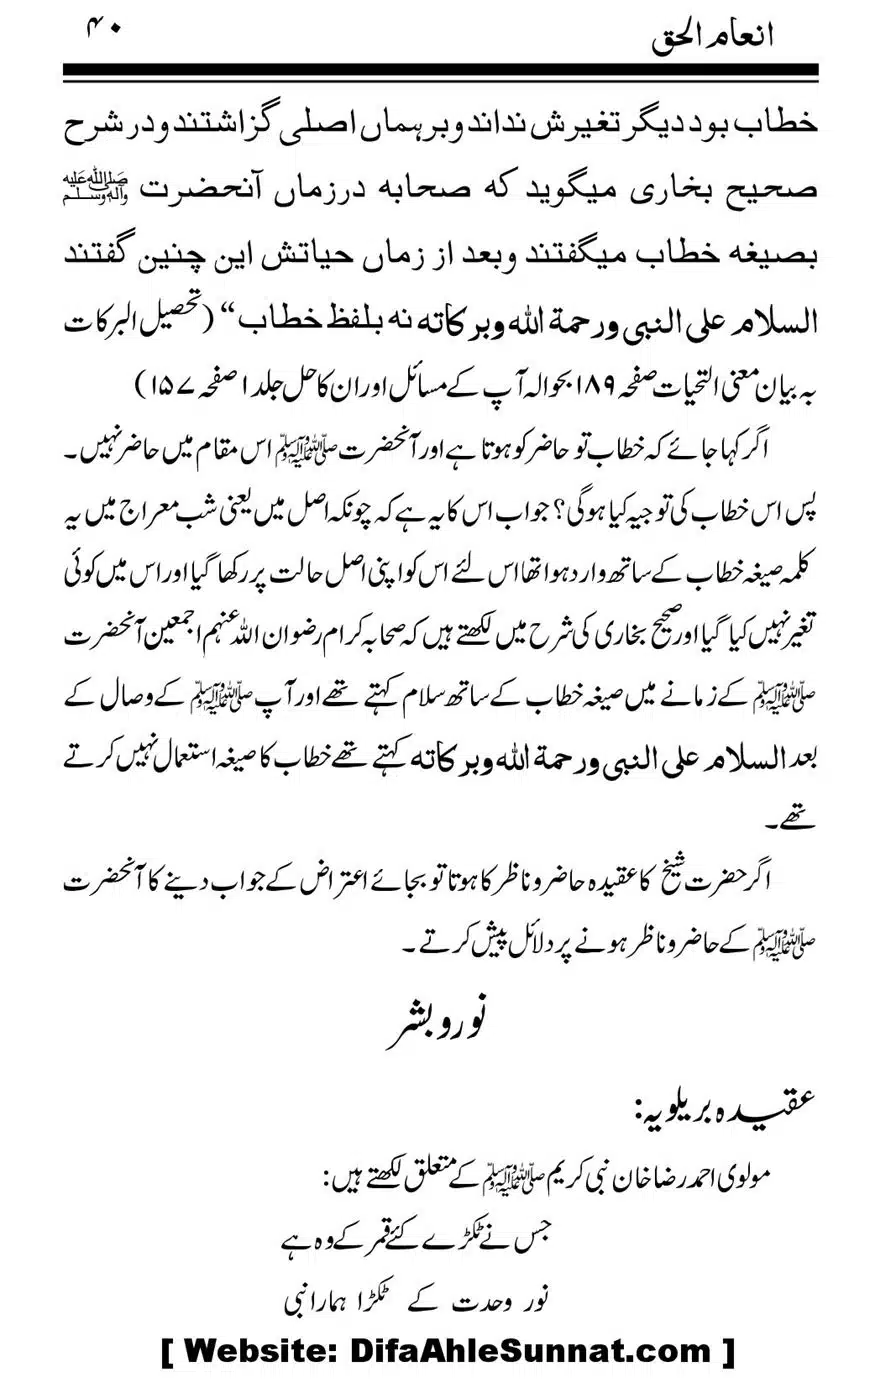 انعام الحق ۴۰
خطاب بود دیگر تغیرش نداند و بر ہماں اصلی گزاشتند و در شرح
صحیح بخاری میگوید که صحابه درزماں آنحضرت ﷺ
بصیغه خطاب میگفتند وبعد از زماں حیاتش این چنین گفتند
السلام علی النبی ورحمة الله وبرکاته نه بلفظ خطاب“ (تحصیل البرکات
بہ بیان معنی التحیات صفحہ ۱۸۹ بحوالہ آپ کے مسائل اور ان کا حل جلد ۱ صفحہ ۱۵۷)
اگر کہا جائے کہ خطاب تو حاضر کو ہوتا ہے اور آنحضرت ﷺ اس مقام میں حاضر نہیں۔
پس اس خطاب کی توجیہ کیا ہوگی؟ جواب اس کا یہ ہے کہ چونکہ اصل میں یعنی شب معراج میں یہ
کلمہ صیغہ خطاب کے ساتھ وارد ہوا تھا اس لئے اس کو اپنی اصل حالت پر رکھا گیا اور اس میں کوئی
تغیر نہیں کیا گیا اور صحیح بخاری کی شرح میں لکھتے ہیں کہ صحابہ کرام رضوان اللہ عنہم اجمعین آنحضرت
ﷺ کے زمانے میں صیغہ خطاب کے ساتھ سلام کہتے تھے اور آپ ﷺ کے وصال کے
بعد السلام علی النبی ورحمة الله وبرکاته کہتے تھے خطاب کا صیغہ استعمال نہیں کرتے
تھے۔
اگر حضرت شیخ کا عقیدہ حاضر و ناظر کا ہوتا تو بجائے اعتراض کے جواب دینے کا آنحضرت
ﷺ کے حاضر و ناظر ہونے پر دلائل پیش کرتے۔
نور و بشر
عقیدہ بریلویہ:
مولوی احمد رضا خان نبی کریم ﷺ کے متعلق لکھتے ہیں:
جس نے ٹکڑے کئے قمر کے وہ ہے
نور وحدت کے ٹکڑا ہمارا نبی
[ Website: DifaAhleSunnat.com ]